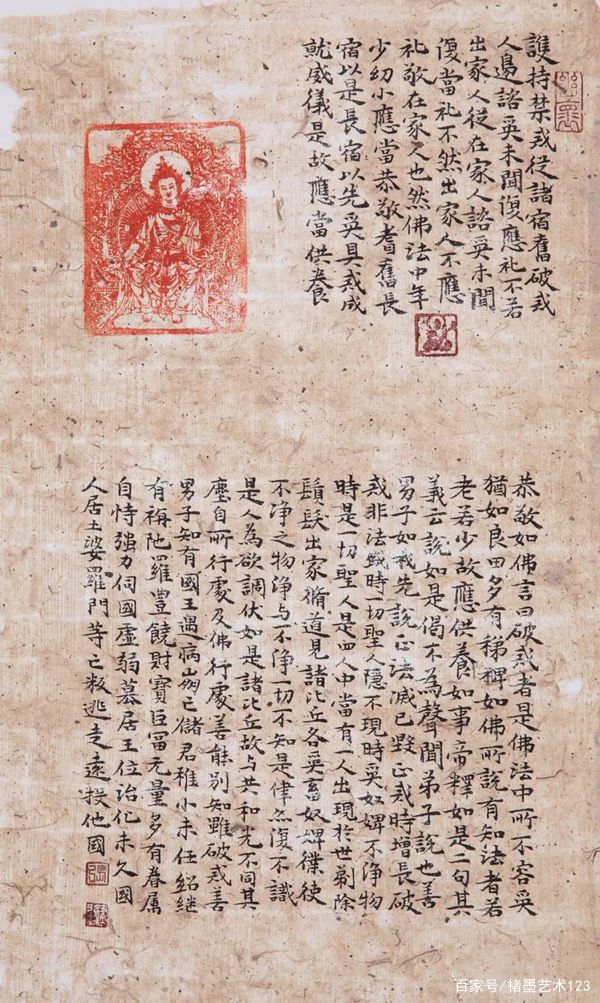 護持禁戒從諸宿舊破戒
人邊諮受未聞復應礼不若
出家人從在家人諮受未聞
復當礼不然出家人不應
礼敬在家人也然佛法中年
少幼小應當恭敬耆舊長
宿以是長宿以先受具戒成
就威儀是故應當供養
恭敬如佛言曰破戒者是佛法中所不容受
猶如良田多有稊稗如佛所說有知法者若
老若少故應供養如事帝釋如是二句其
義云說如是偈不為聲聞弟子說也善
男子如我先說正法滅已毀正戒時增長破
戒非法盛時一切聖人隱不現時受奴婢不淨物
時是一切聖人是四人中當有一人出現於世剃除
鬚髮出家脩道見諸比丘各受畜奴婢僕使
不净之物净与不净一切不知是律亦復不識
是人為欲調伏如是諸比丘故与共和光不同其
塵自所行處及佛行處善能別知雖破戒善
男子知有國王遇病崩亡儲君稚小未任紹継
有旃陁羅豐饒財寶巨富无量多有眷属
自恃強力伺國虛弱慕居王位治化未久國
人居士婆羅門等亡叛逃走遠投他國
百家号/楮墨艺术123